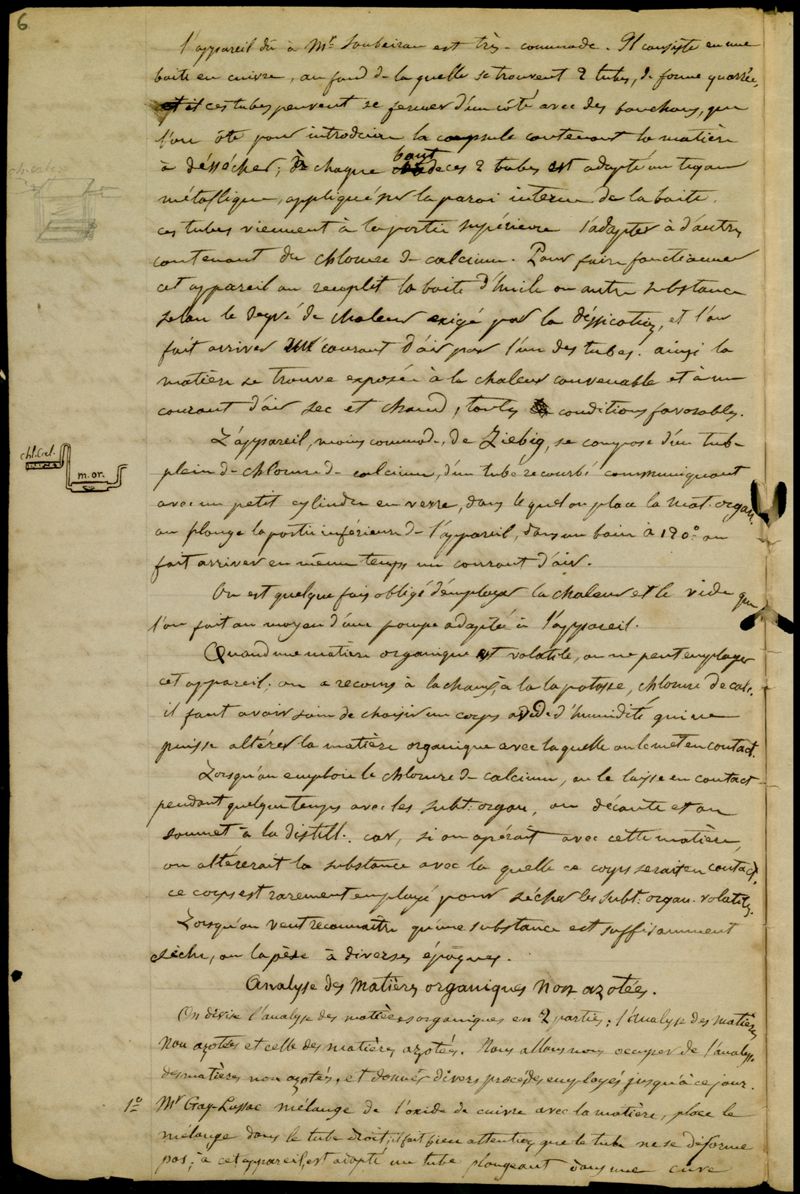 6
l'appareil dû à Mr Soubeiran est très-commode. Il consiste en une
boite en cuivre, au fond de laquelle se trouvent 2 tubes, de forme quarrée,
ces tubes peuvent se fermer d'un côté avec des bouchons, que
l'on ôte pour introduire la capsule contenant la matière
à déssécher; à chaque bout de ces 2 tubes est adapté un tuyau
métallique, appliqué sur la paroi interne de la boite.
ces tubes viennent à la partie supérieure s'adapter à d'autres
contenant du chlorure de calcium. Pour faire fonctionner
cet appareil on remplit la boite d'huile ou autre substance
selon le degré de chaleur exigé par la déssication, et l'on
fait arriver un courant d'air par l'un des tubes. ainsi la
matière se trouve exposée à la chaleur convenable et à un
courant d'air sec et chaud, toutes conditions favorables.
L'appareil, moins commode, de Liebig, se compose d'un tube
plein de chlorure de calcium, d'un tube recourbé communiquant
chl. cal.
m. or.
avec un petit cylindre en verre, dans lequel on place la mat. organ.
on plonge la partie inférieure de l'appareil, dans un bain à 120° on
fait arriver en même temps un courant d'air.
On est quelque fois obligé d'employer la chaleur et le vide que
l'on fait au moyen d'une pompe adaptée à l'appareil.
Quand une matière organique est volatile, on ne peut employer
cet appareil. on a recours à la chaux, à la potasse, chlorure de calc.
il faut avoir soin de choisir un corps avide d'humidité qui ne
puisse altérer la matière organique avec laquelle on le met en contact.
Lorsqu'on emploie le chlorure de calcium, on le laisse en contact
pendant quelque temps avec les subst. organ., on décante et on
soumet à la distill. car, si on opérait avec cette matière,
on altérerait la substance avec laquelle ce corps serait en contact.
ce corps est rarement employé pour sécher les subst. organ. volatiles.
Lorsqu'on veut reconnaître qu'une substance est suffisamment
sèche, on la pèse à diverses époques.
Analyse des Matières organiques Non azotées.
On divise l'analyse des matières organiques en 2 parties; l'analyse des matières
Non azotées et celle des matières azotées. Nous allons nous occuper de l'analyse
des matières non azotées, et donner divers procédés employés jusqu'à ce jour.
1° Mr Gay-Lussac mélange de l'oxide de cuivre avec la matière, place le
mélange dans le tube droit; il fait bien attention que le tube ne se déforme
pas; à cet appareil, est adapté un tube plongeant dans une cuve